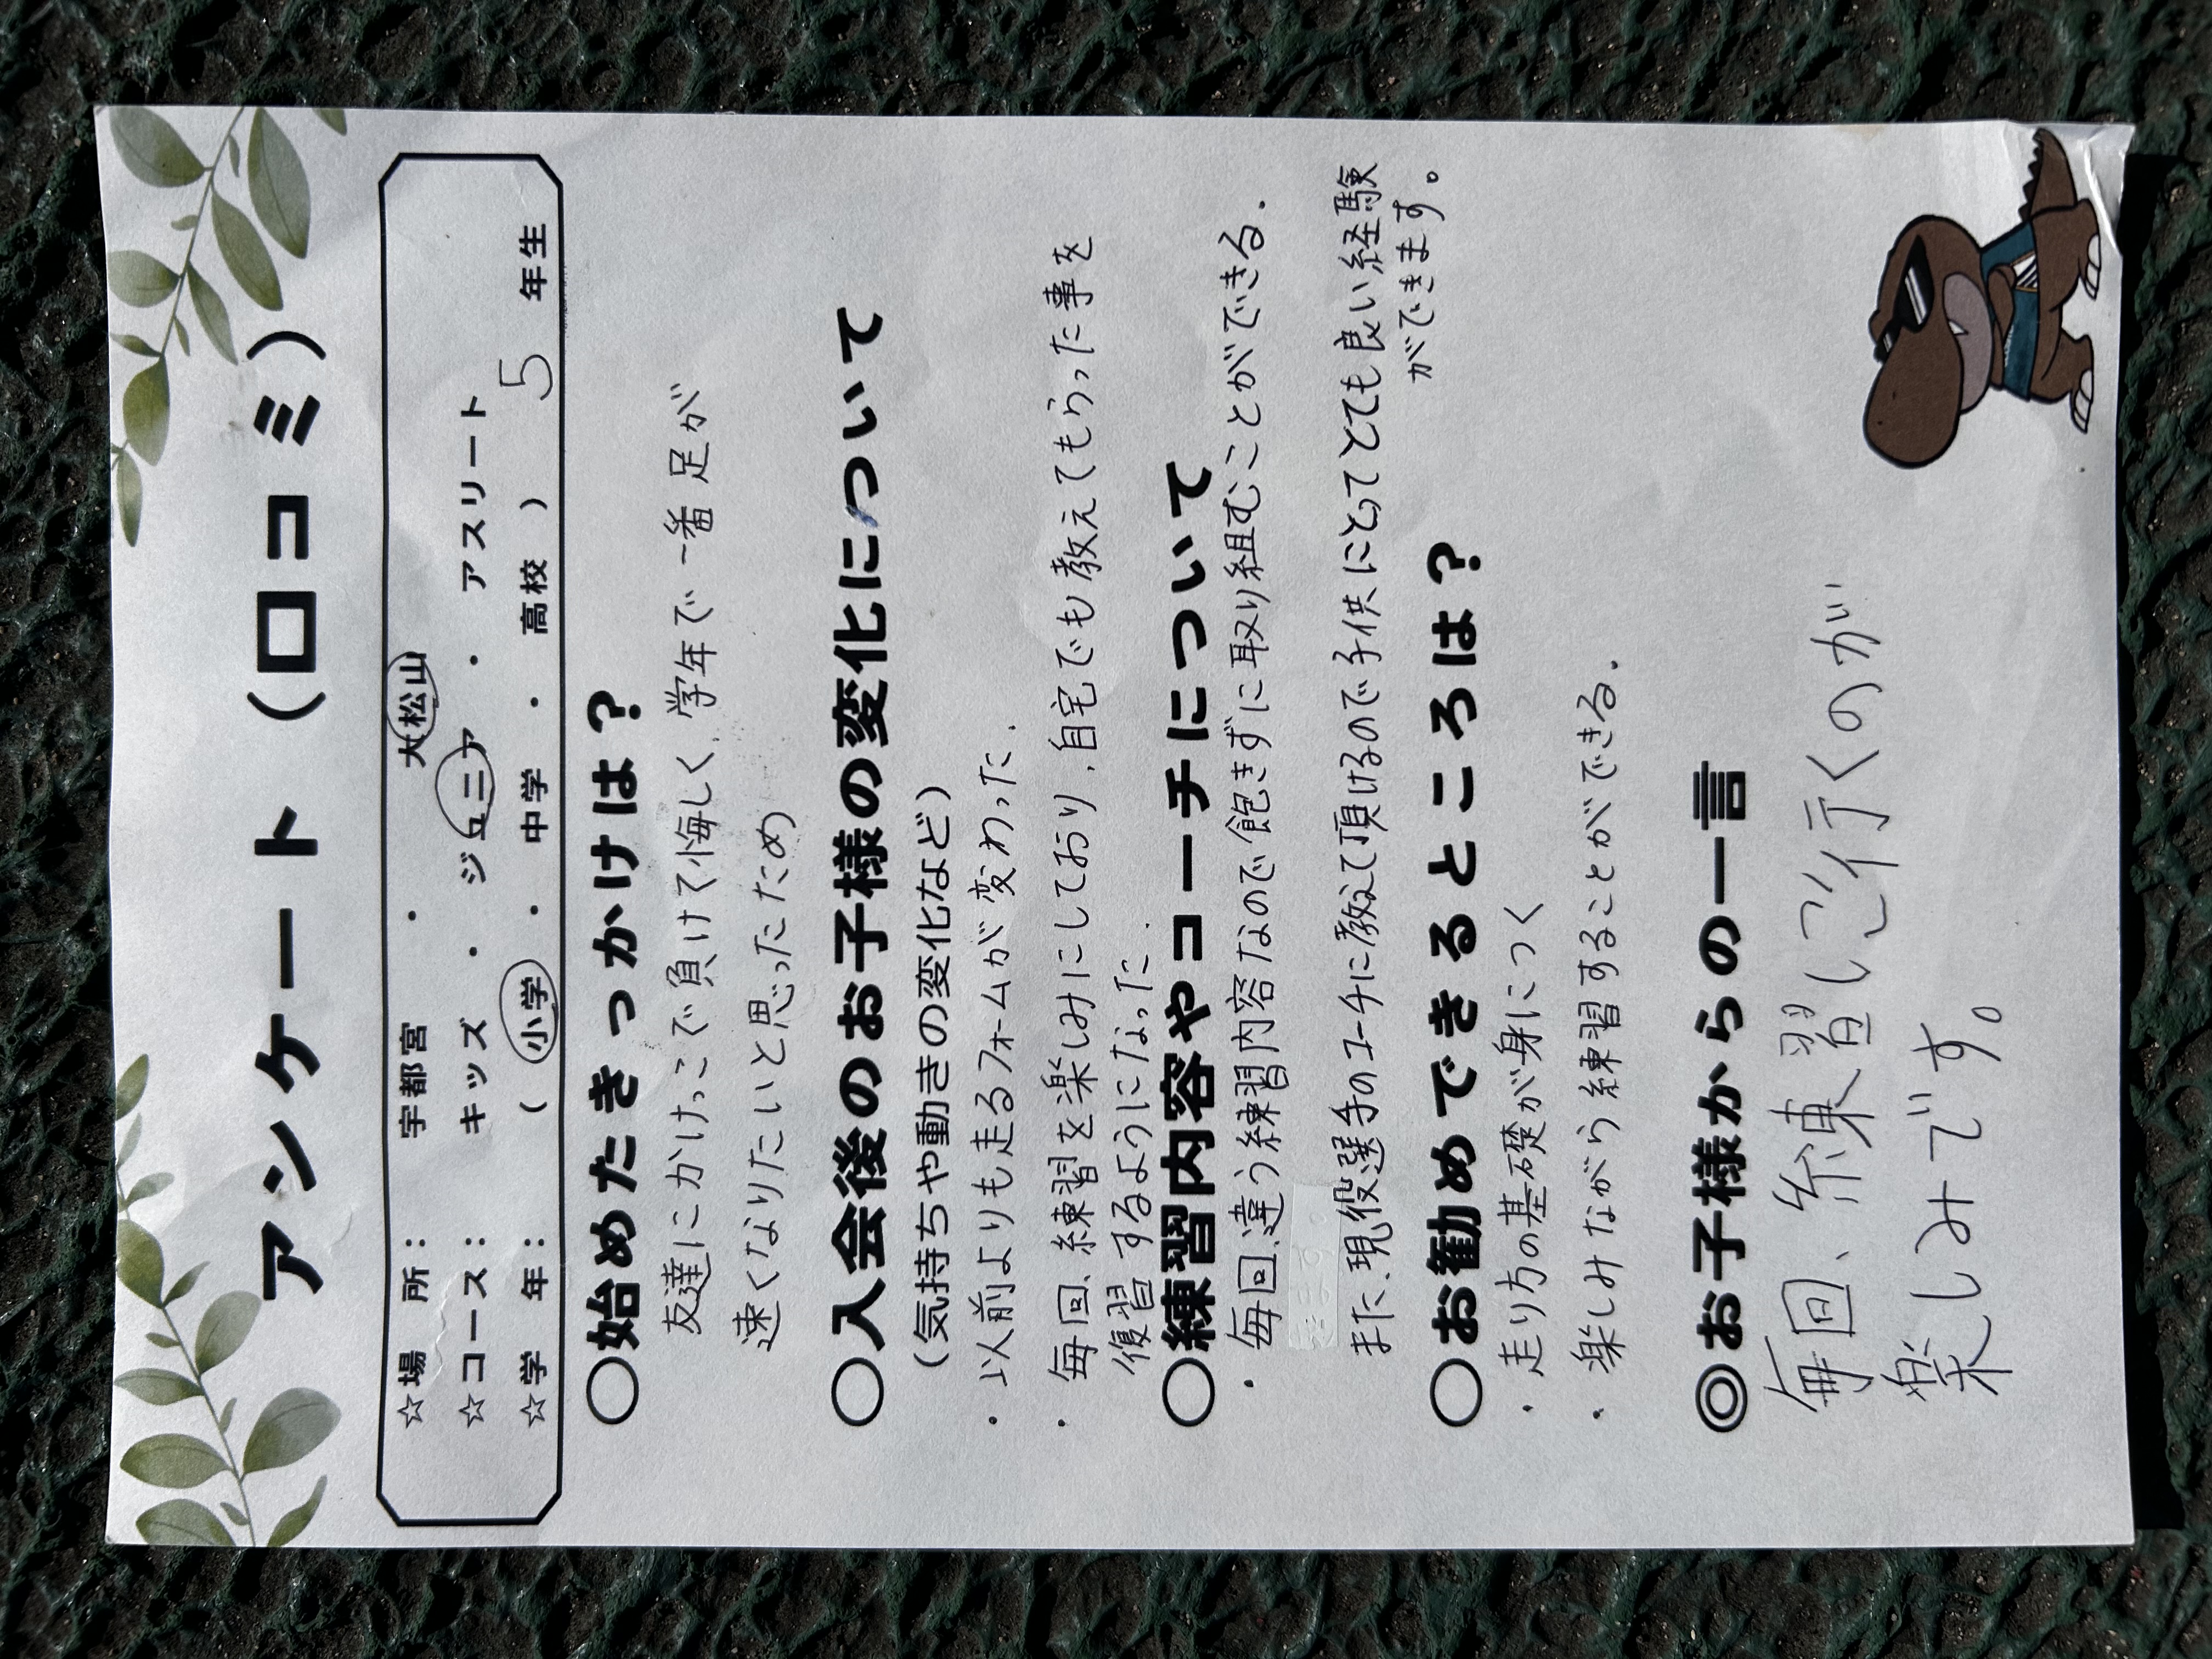 アンケート（口コミ）
☆場　所：　宇都宮　・　大松山
☆コース：　キッズ　・　ジュニア　・　アスリート
☆学　年：　（　小学　・　中学　・　高校　）　5　年生
○始めたきっかけは？
友達にかけっこで負けて悔しく、学年で一番足が
速くなりたいと思ったため
○入会後のお子様の変化について
（気持ちや動きの変化など）
・以前よりも走るフォームが変わった.
・毎回、練習を楽しみにしており、自宅でも教えてもらった事を
復習するようになった.
○練習内容やコーチについて
・毎回、違う練習内容なので飽きずに取り組むことができる.
また、現役選手のコーチに教えて頂けるので子供にとってとても良い経験
ができます。
○お勧めできるところは？
・走り方の基礎が身につく
・楽しみながら練習することができる.
◎お子様からの一言
毎回、練習しに行くのが
楽しみです。